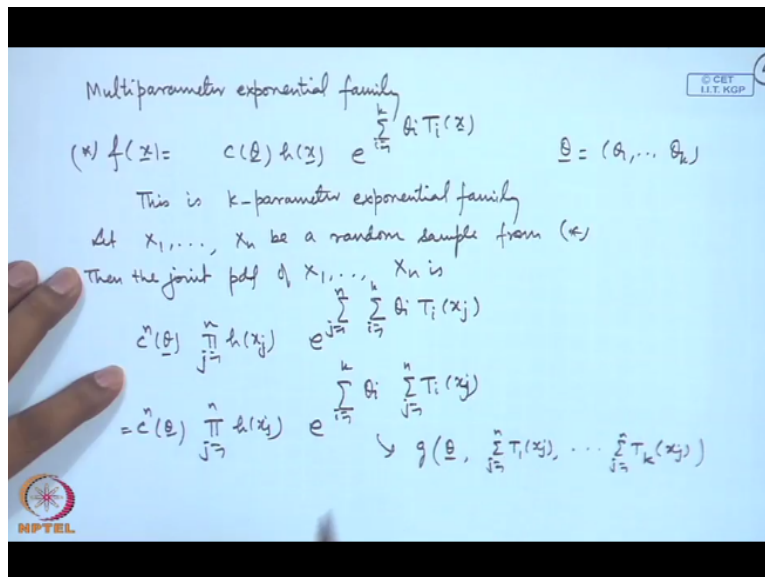 Multiparameter exponential family
© CET
I.I.T. KGP
(*) f(x) = c(θ) h(x) e^{∑_{i=1}^{k} θi Ti(x)} θ = (θ1, ... θk)
This is k-parameter exponential family
Let X1, ..., Xn be a random sample from (*)
Then the joint pdf of X1, ..., Xn is
c^n(θ) ∏_{j=1}^{n} h(xj) e^{∑_{j=1}^{n} ∑_{i=1}^{k} θi Ti(xj)}
= c^n(θ) ∏_{j=1}^{n} h(xj) e^{∑_{i=1}^{k} θi ∑_{j=1}^{n} Ti(xj)}
↘ g(θ, ∑_{j=1}^{n} T1(xj), ... ∑_{j=1}^{n} Tk(xj))
NPTEL